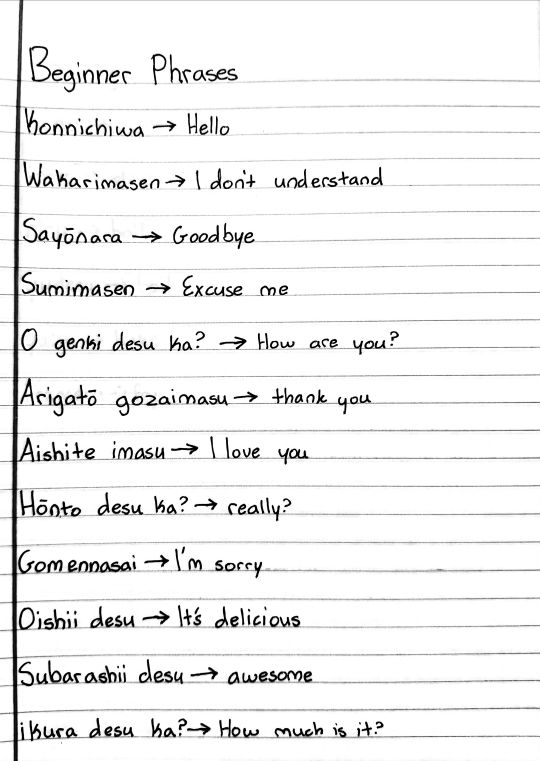 Beginner Phrases
Konnichiwa → Hello
Wakarimasen → I don't understand
Sayōnara → Goodbye
Sumimasen → Excuse me
O genki desu ka? → How are you?
Arigatō gozaimasu → thank you
Aishite imasu → I love you
Hōnto desu ka? → really?
Gomennasai → I'm sorry
Oishii desu → It's delicious
Subarashii desu → awesome
ikura desu ka? → How much is it?